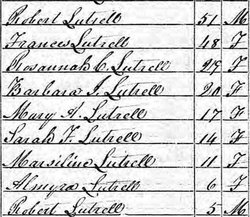 Robert Lutrell 51 M
Frances Lutrell 48 F
Rosannah C. Lutrell 25 F
Barbara J. Lutrell 20 F
Mary A. Lutrell 17 F
Sarah F. Lutrell 14 F
Marsiline Lutrell 11 F
Almyra Lutrell 6 F
Robert Lutrell 5 M